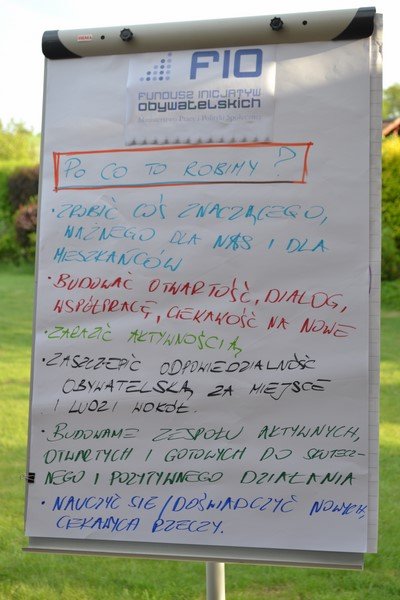 FIO
FUNDUSZ INICJATYW
obywatelskich
Ministerstwo Pracy i Polityki Społecznej
PO CO TO ROBIMY?
• ZROBIĆ COŚ ZNACZĄCEGO,
WAŻNEGO DLA NAS I DLA
MIESZKAŃCÓW
• BUDOWAĆ OTWARTOŚĆ, DIALOG,
WSPÓŁPRACĘ, CIEKAWOŚĆ NA NOWE
• ZARAZIĆ AKTYWNOŚCIĄ
• ZASZCZEPIĆ ODPOWIEDZIALNOŚĆ
OBYWATELSKĄ ZA MIEJSCE
I LUDZI WOKÓŁ.
• BUDOWANIE ZESPOŁU AKTYWNYCH,
OTWARTYCH I GOTOWYCH DO SKUTECZ-
NEGO I POZYTYWNEGO DZIAŁANIA
• NAUCZYĆ SIĘ / DOŚWIADCZYĆ NOWYCH,
CIEKAWYCH RZECZY.